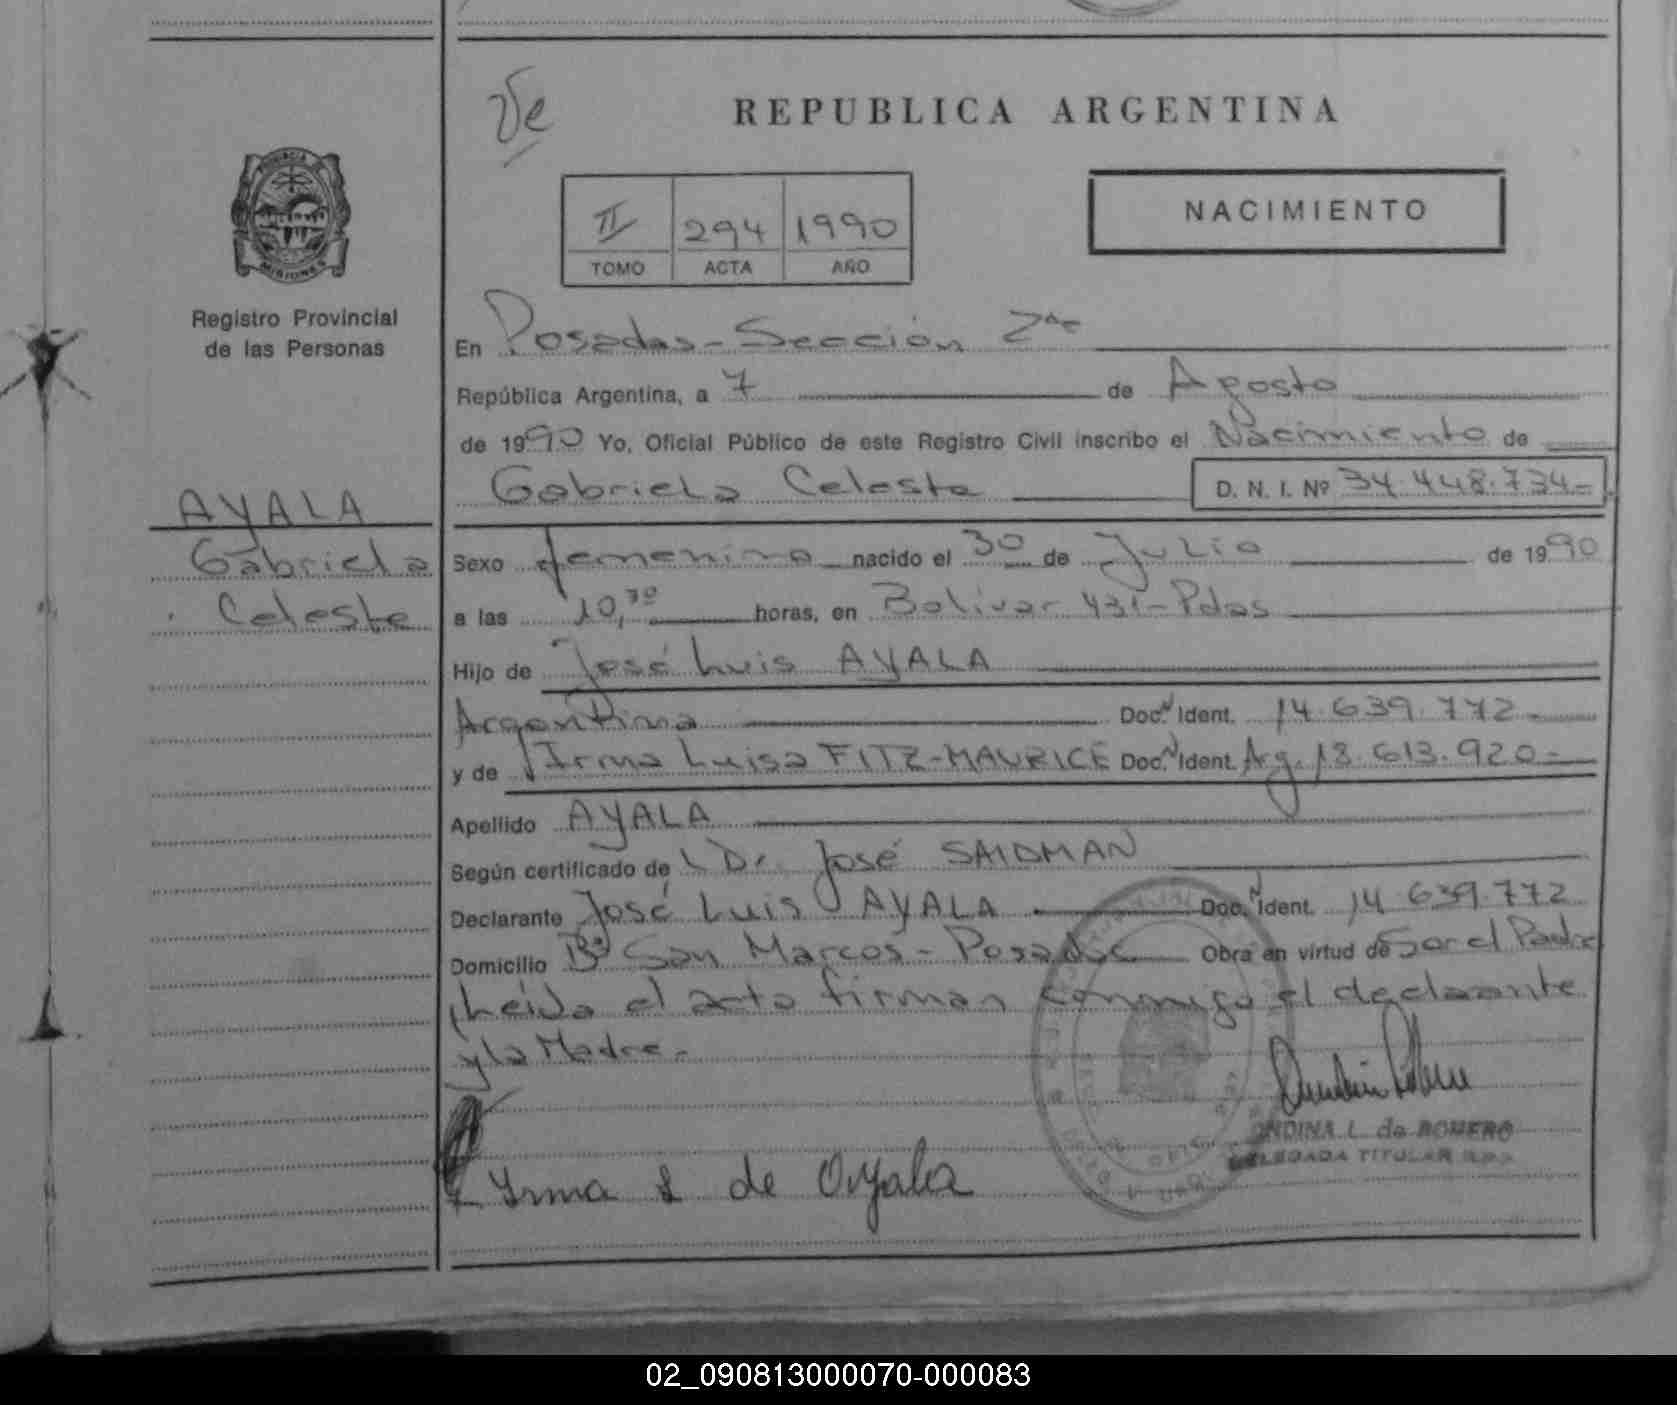 REPUBLICA ARGENTINA
NACIMIENTO
II 294 1990
TOMO ACTA AÑO
PROVINCIA DE
MISIONES
Registro Provincial
de las Personas
En Posadas - Sección 2da
República Argentina, a 7 de Agosto
de 1990 Yo, Oficial Público de este Registro Civil inscribo el Nacimiento de
Gabriela Celeste D. N. I. Nº 34.448.734-
AYALA
Gabriela
Celeste
Sexo femenino nacido el 30 de Julio de 1990
a las 10,30 horas, en Bolivar 431 - Pdas
Hijo de José Luis AYALA
Argentina Doc. Ident. 14.639.772-
y de Irma Luisa FITZ-MAURICE Doc. Ident. Arg. 13.613.920-
Apellido AYALA
Según certificado de Dr. José SAIDMAN
Declarante José Luis AYALA Doc. Ident. 14.639.772
Domicilio Bº San Marcos - Posadas Obra en virtud de Ser el Padre
Leída el acta firman conmigo el declarante
y la Madre.-
ONDINA L. de ROMERO
DELEGADA TITULAR R.P.P.
Irma L de Ayala
02_090813000070-000083